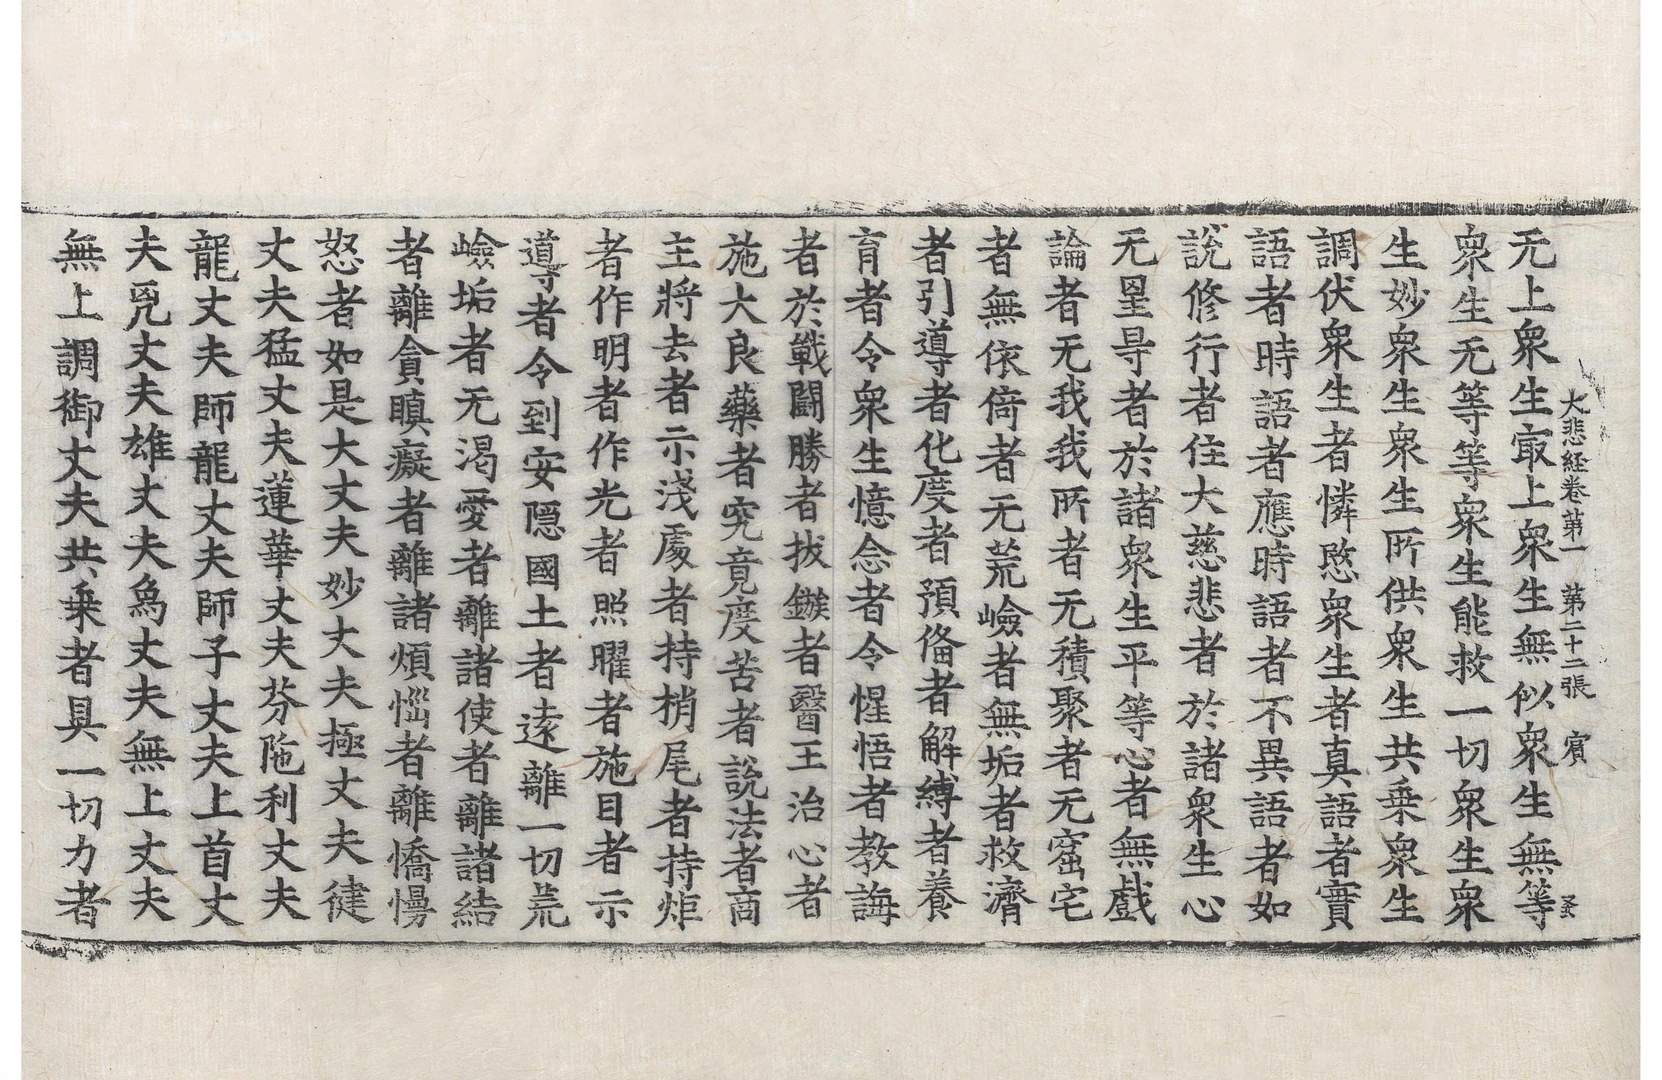 大悲経卷第一　第二十二張　賓
无上衆生㝡上衆生無似衆生無等
衆生无等等衆生能救一切衆生衆
生妙衆生衆生所供衆生共乗衆生
調伏衆生者憐愍衆生者真語者實
語者時語者應時語者不異語者如
說修行者住大慈悲者於諸衆生心
无罣㝵者於諸衆生平等心者無戲
論者无我我所者无積聚者无窟宅
者無依倚者无荒嶮者無垢者救濟
者引導者化度者預俻者解縛者養
育者令衆生憶念者令惺悟者教誨
者於戰鬪勝者拔鏃者醫王治心者
施大良藥者究竟度苦者說法者商
主將去者示淺處者持梢尾者持炬
者作明者作光者照曜者施目者示
導者令到安隱國土者遠離一切荒
嶮垢者无渴愛者離諸使者離諸結
者離貪瞋癡者離諸煩惱者離憍慢
怒者如是大丈夫妙丈夫極丈夫健
丈夫猛丈夫蓮華丈夫芬陁利丈夫
龍丈夫師龍丈夫師子丈夫上首丈
夫兕丈夫雄丈夫爲丈夫無上丈夫
無上調御丈夫共乗者具一切力者